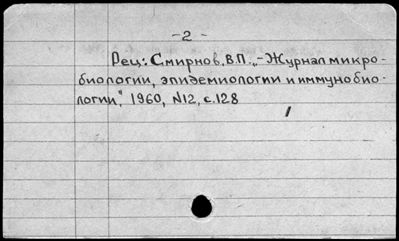 -2-
Рец.: Смирнов, В.П. „-Журнал микро-
биологии, эпидемиологии и иммунобио-
логии", 1960, N12, с.128